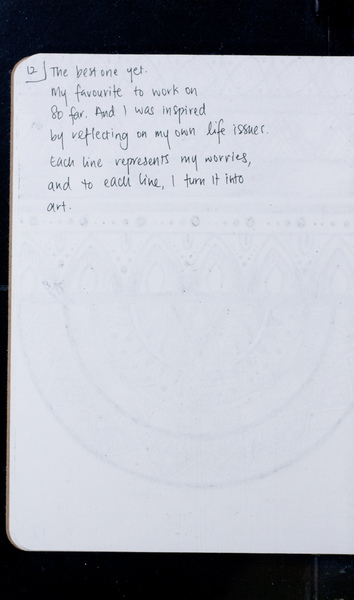 12] The best one yet.
My favourite to work on
so far. And I was inspired
by reflecting on my own life issues.
Each line represents my worries,
and to each line, I turn it into
art.